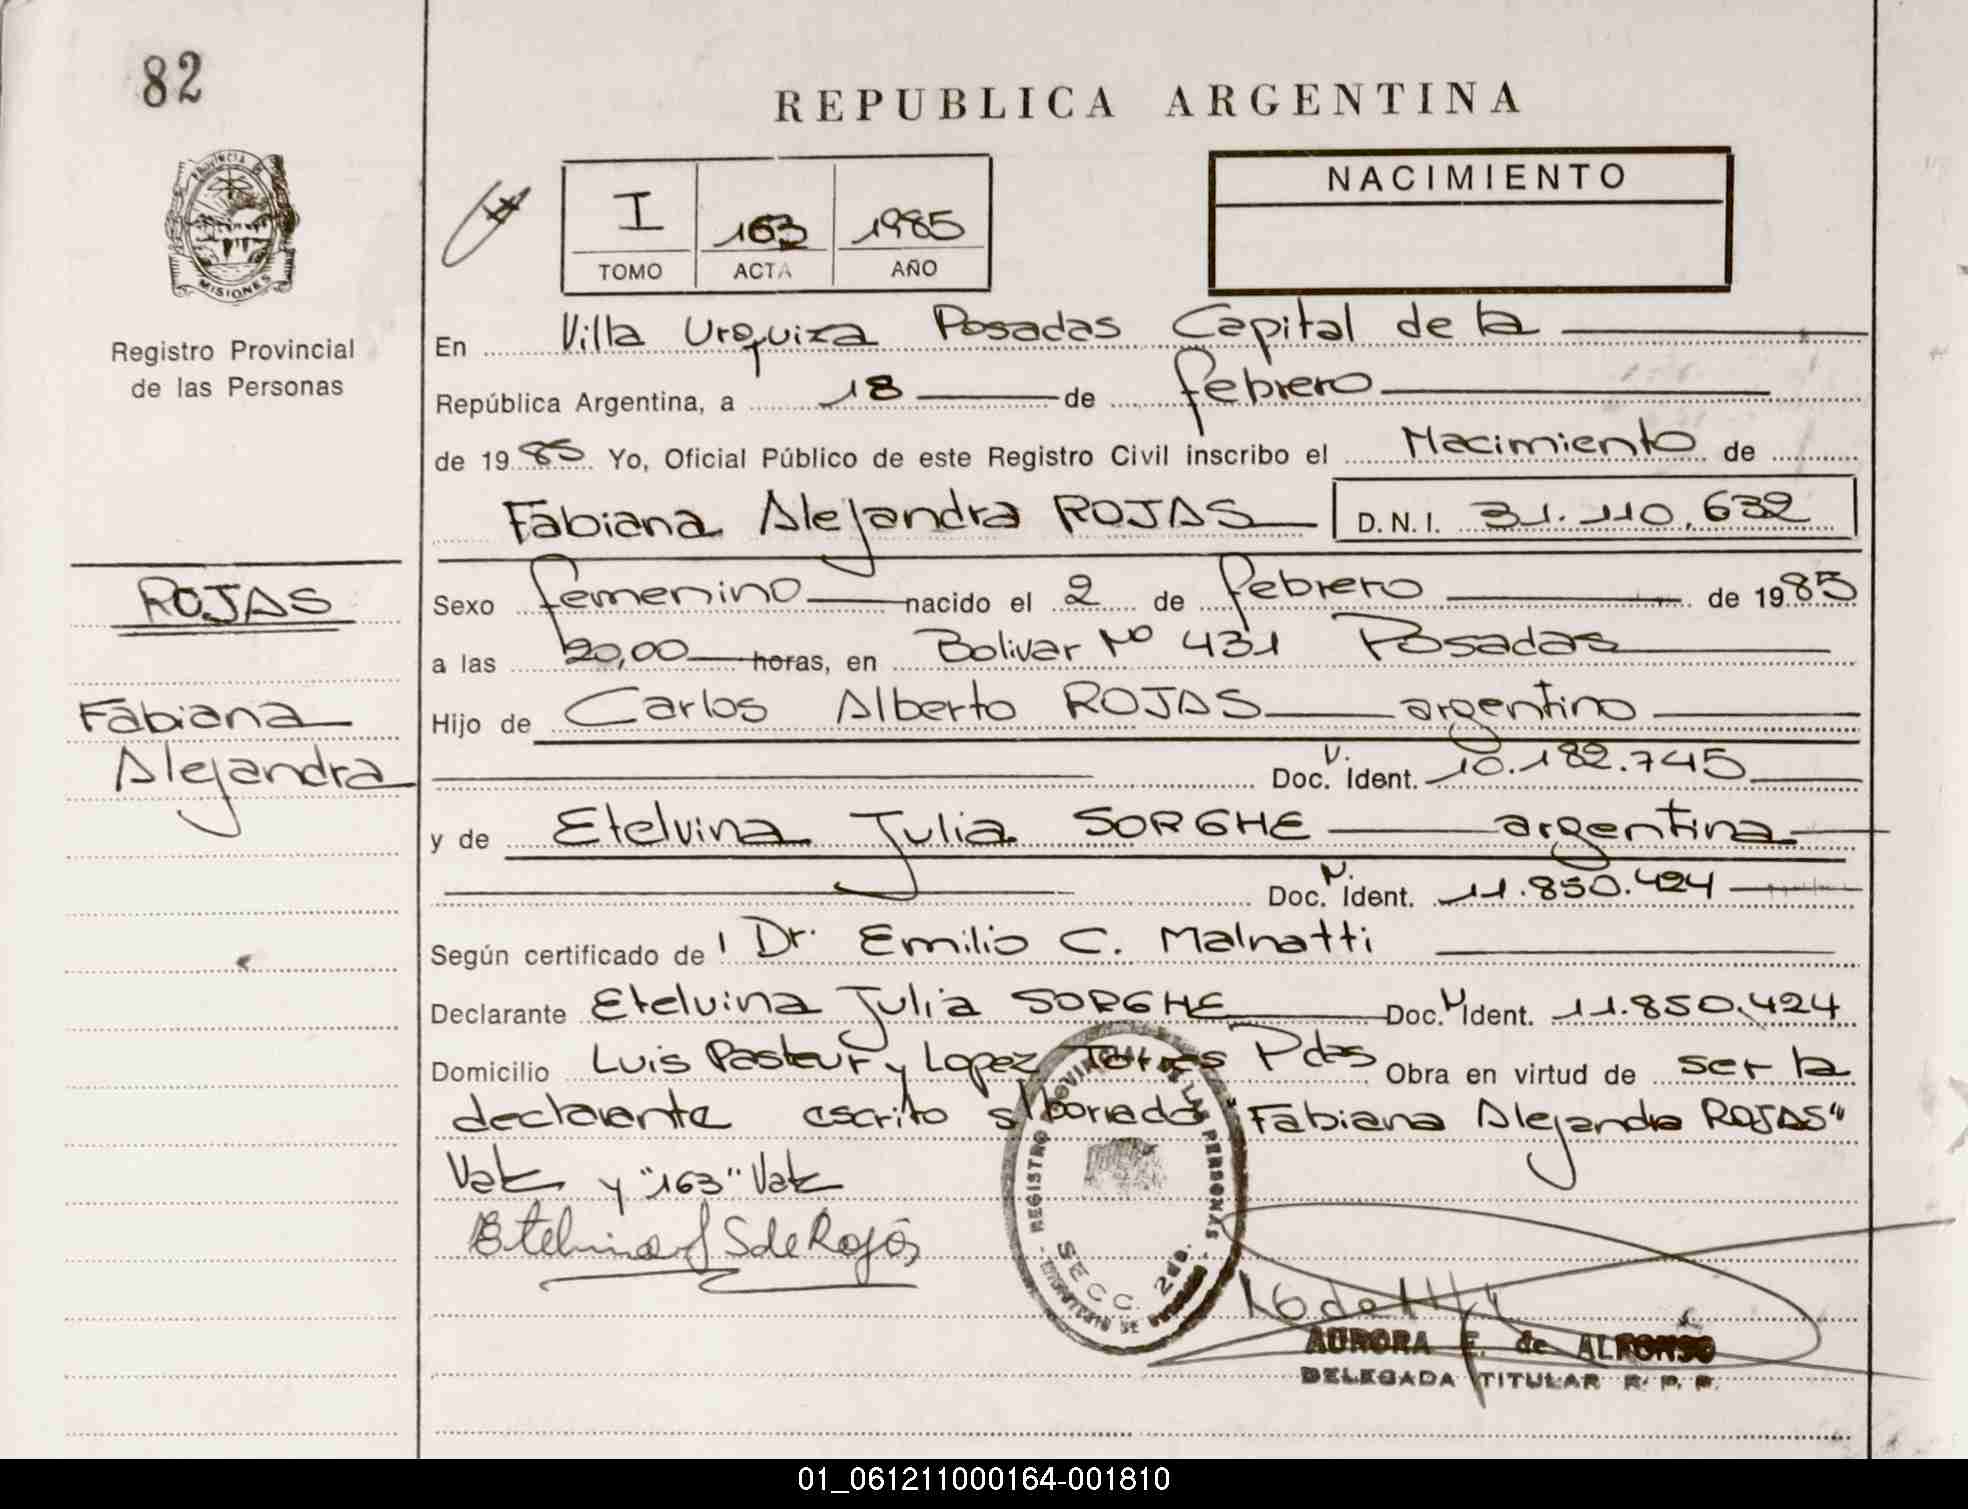 82
REPUBLICA ARGENTINA
PROVINCIA DE
MISIONES
Registro Provincial
de las Personas
I 163 1985
TOMO ACTA AÑO
NACIMIENTO
En Villa Urquiza Posadas Capital de la
República Argentina, a 18 de febrero
de 1985 Yo, Oficial Público de este Registro Civil inscribo el Nacimiento de
Fabiana Alejandra ROJAS D.N.I. 31.110.632
ROJAS
Fabiana
Alejandra
Sexo femenino nacido el 2 de febrero de 1985
a las 20,00 horas, en Bolivar Nº 431 Posadas
Hijo de Carlos Alberto ROJAS argentino
Doc. N. Ident. 10.182.745
y de Etelvina Julia SORGHE argentina
Doc. N. Ident. 11.850.424
Según certificado de Dr. Emilio C. Malnatti
Declarante Etelvina Julia SORGHE Doc. N Ident. 11.850.424
Domicilio Luis Pasteur y Lopez Torres Pdas Obra en virtud de ser la
declarante escrito s/borrado "Fabiana Alejandra ROJAS"
Vale y "163" Vale
Etelvina J S de Rojas
REGISTRO PROVINCIAL DE LAS PERSONAS
SECC. 2da.
AURORA E. de ALFONSO
DELEGADA TITULAR R. P. P.
01_061211000164-001810